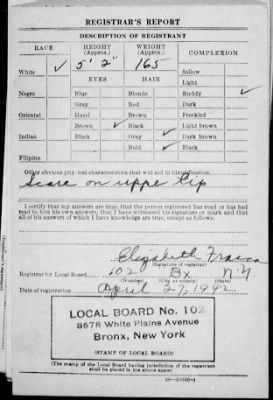 REGISTRAR'S REPORT
DESCRIPTION OF REGISTRANT
RACE HEIGHT (Approx.) WEIGHT (Approx.) COMPLEXION
White ✓ 5' 2" 165 Sallow
Light
EYES HAIR
Negro Blue Blonde Ruddy ✓
Gray Red Dark
Oriental Hazel Brown Freckled
Brown ✓ Black Light brown
Indian Black Gray ✓ Dark brown
Bald ✓ Black
Filipino
Other obvious physical characteristics that will aid in identification
Scare on uppe lip
I certify that my answers are true; that the person registered has read or has had
read to him his own answers; that I have witnessed his signature or mark and that
all of his answers of which I have knowledge are true, except as follows:
Elizabeth
(Signature of registrar)
Registrar for Local Board 102 Bx N.Y.
(Number) (City or county) (State)
Date of registration April 27, 1942
LOCAL BOARD No. 102
3678 White Plains Avenue
Bronx, New York
(STAMP OF LOCAL BOARD)
(The stamp of the Local Board having jurisdiction of the registrant
shall be placed in the above space)